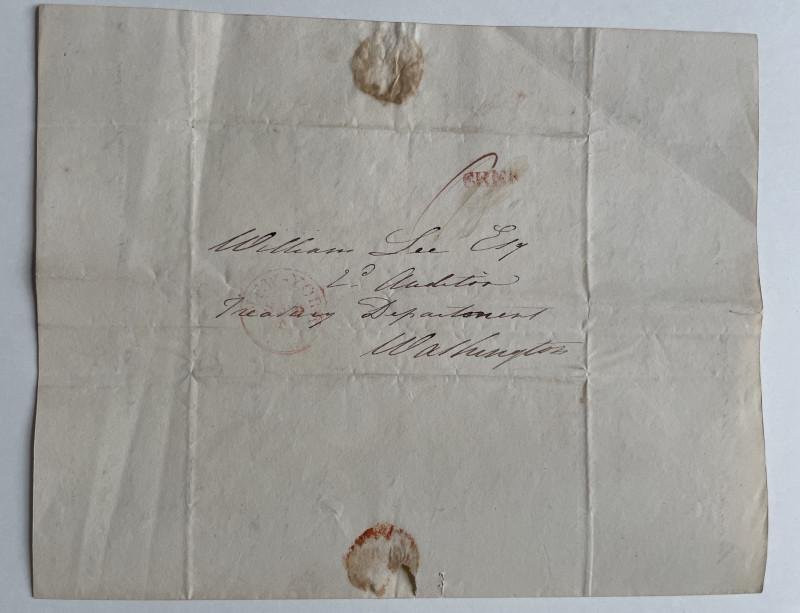 William Lee Esq
2d. Auditor
Treasury Department
Washington
NEW-YORK